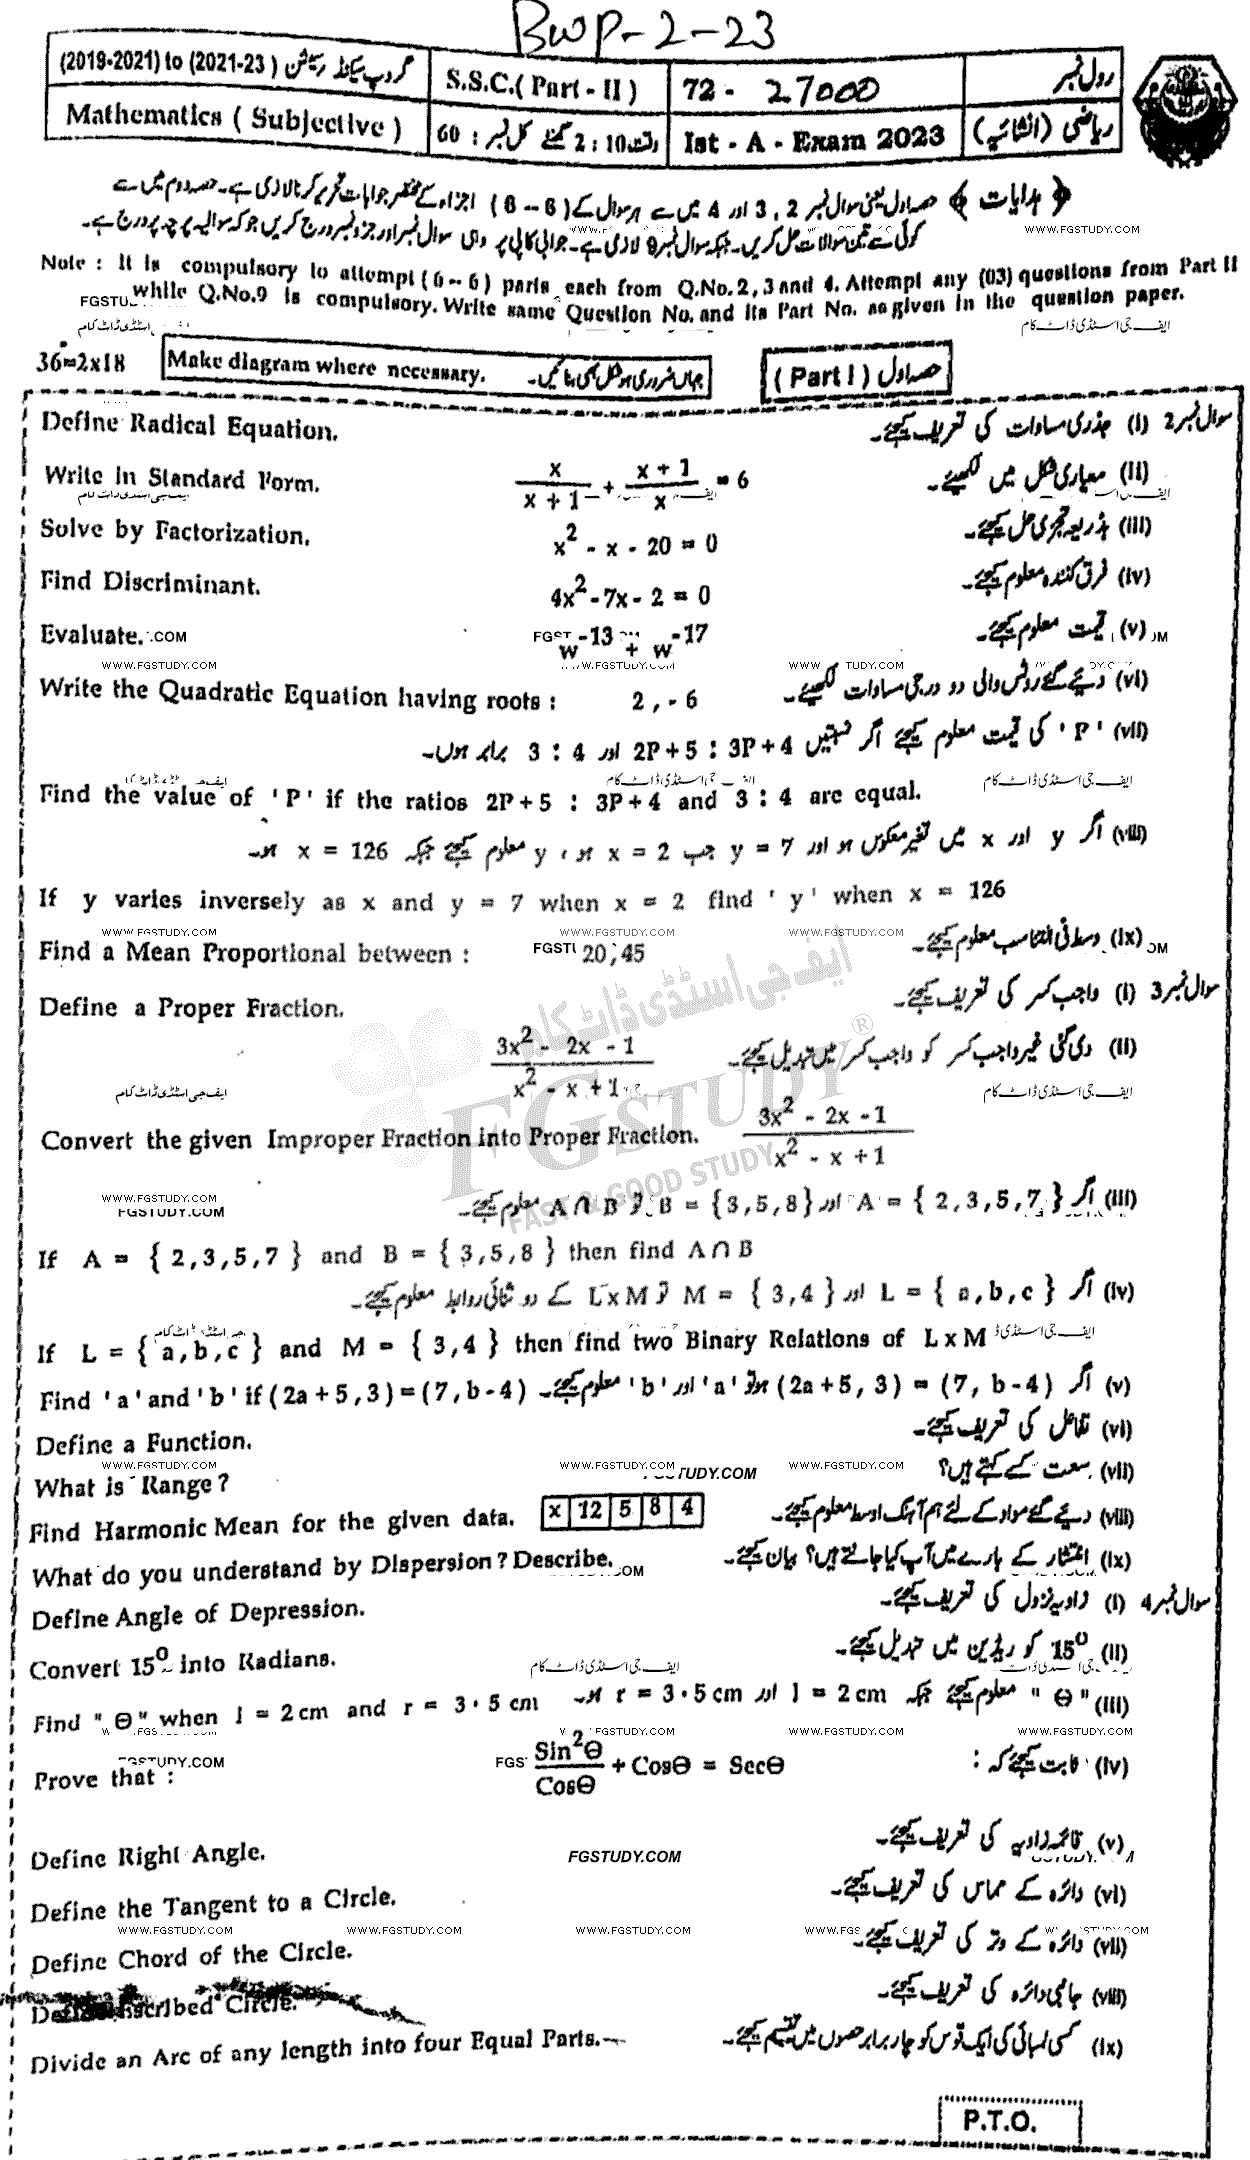 BWP-2-23
(2019-2021) to (2021-23) گروپ سیکنڈ سیشن
S.S.C.( Part - II )
72 - 27000
رول نمبر
Mathematics ( Subjective )
وقت: 2:10 گھنٹے کل نمبر: 60
Ist - A - Exam 2023
ریاضی (انشائیہ)
﴿ ہدایات ﴾ حصہ اول یعنی سوال نمبر 2 ، 3 اور 4 میں سے ہر سوال کے (6 -- 6) اجزاء کے مختصر جوابات تحریر کرنا لازمی ہے۔ حصہ دوم میں سے
کوئی سے تین سوالات حل کریں۔ جبکہ سوال نمبر 9 لازمی ہے۔ جوابی کاپی پر وہی سوال نمبر اور جزو نمبر درج کریں جو کہ سوالیہ پرچہ پر درج ہے۔
Note : It is compulsory to attempt (6 -- 6) parts each from Q.No.2, 3 and 4. Attempt any (03) questions from Part II
while Q.No.9 is compulsory. Write same Question No. and its Part No. as given in the question paper.
36=2x18
Make diagram where neccessary. جہاں ضروری ہو شکل بھی بنائیں۔
( Part I ) حصہ اول
Define Radical Equation. سوال نمبر 2 (i) جذری مساوات کی تعریف کیجئے۔
Write in Standard Form. x/(x + 1) + (x + 1)/x = 6 (ii) معیاری شکل میں لکھیئے۔
Solve by Factorization. x² - x - 20 = 0 (iii) بذریعہ تجزی حل کیجئے۔
Find Discriminant. 4x² - 7x - 2 = 0 (iv) فرق کنندہ معلوم کیجئے۔
Evaluate. w⁻¹³ + w⁻¹⁷ (v) قیمت معلوم کیجئے۔
Write the Quadratic Equation having roots : 2 , - 6 (vi) دیئے گئے روٹس والی دو درجی مساوات لکھیئے۔
(vii) ' P ' کی قیمت معلوم کیجئے اگر نسبتیں 2P + 5 : 3P + 4 اور 3 : 4 برابر ہوں۔
Find the value of ' P' if the ratios 2P + 5 : 3P + 4 and 3 : 4 are equal.
(viii) اگر y اور x میں تغیر معکوس ہو اور y = 7 جب x = 2 ہو ، y معلوم کیجئے جبکہ x = 126 ہو۔
If y varies inversely as x and y = 7 when x = 2 find ' y' when x = 126
Find a Mean Proportional between : 20 , 45 (ix) وسط فی التناسب معلوم کیجئے۔
Define a Proper Fraction. سوال نمبر 3 (i) واجب کسر کی تعریف کیجئے۔
(3x² - 2x - 1)/(x² - x + 1) (ii) دی گئی غیر واجب کسر کو واجب کسر میں تبدیل کیجئے۔
Convert the given Improper Fraction into Proper Fraction. (3x² - 2x - 1)/(x² - x + 1)
(iii) اگر A = { 2 , 3 , 5 , 7 } اور B = { 3 , 5 , 8 } تو A ∩ B معلوم کیجئے۔
If A = { 2 , 3 , 5 , 7 } and B = { 3 , 5 , 8 } then find A ∩ B
(iv) اگر L = { a , b , c } اور M = { 3 , 4 } تو L x M کے دو ثنائی روابط معلوم کیجئے۔
If L = { a , b , c } and M = { 3 , 4 } then find two Binary Relations of L x M
Find 'a' and 'b' if (2a + 5 , 3) = (7 , b - 4) (v) اگر (2a + 5 , 3) = (7 , b - 4) ہو تو 'a' اور 'b' معلوم کیجئے۔
Define a Function. (vi) تفاعل کی تعریف کیجئے۔
What is Range ? (vii) سعت کسے کہتے ہیں؟
Find Harmonic Mean for the given data. x 12 5 8 4 (viii) دیئے گئے مواد کے لئے ہم آہنگ اوسط معلوم کیجئے۔
What do you understand by Dispersion ? Describe. (ix) انتشار کے بارے میں آپ کیا جانتے ہیں؟ بیان کیجئے۔
Define Angle of Depression. سوال نمبر 4 (i) زاویہ نزول کی تعریف کیجئے۔
Convert 15⁰ into Radians. (ii) 15⁰ کو ریڈین میں تبدیل کیجئے۔
Find " Θ" when l = 2 cm and r = 3 · 5 cm (iii) " Θ " معلوم کیجئے جبکہ l = 2 cm اور r = 3 · 5 cm ہو۔
Prove that : Sin²Θ/CosΘ + CosΘ = SecΘ (iv) ثابت کیجئے کہ :
Define Right Angle. (v) قائمہ زاویہ کی تعریف کیجئے۔
Define the Tangent to a Circle. (vi) دائرہ کے مماس کی تعریف کیجئے۔
Define Chord of the Circle. (vii) دائرہ کے وتر کی تعریف کیجئے۔
Circle. (viii) جانبی دائرہ کی تعریف کیجئے۔
Divide an Arc of any length into four Equal Parts. (ix) کسی لمبائی کی ایک قوس کو چار برابر حصوں میں تقسیم کیجئے۔
P.T.O.
ایف جی اسٹڈی ڈاٹ کام
FGSTUDY®
FAST & GOOD STUDY
WWW.FGSTUDY.COM
FGSTUDY.COM